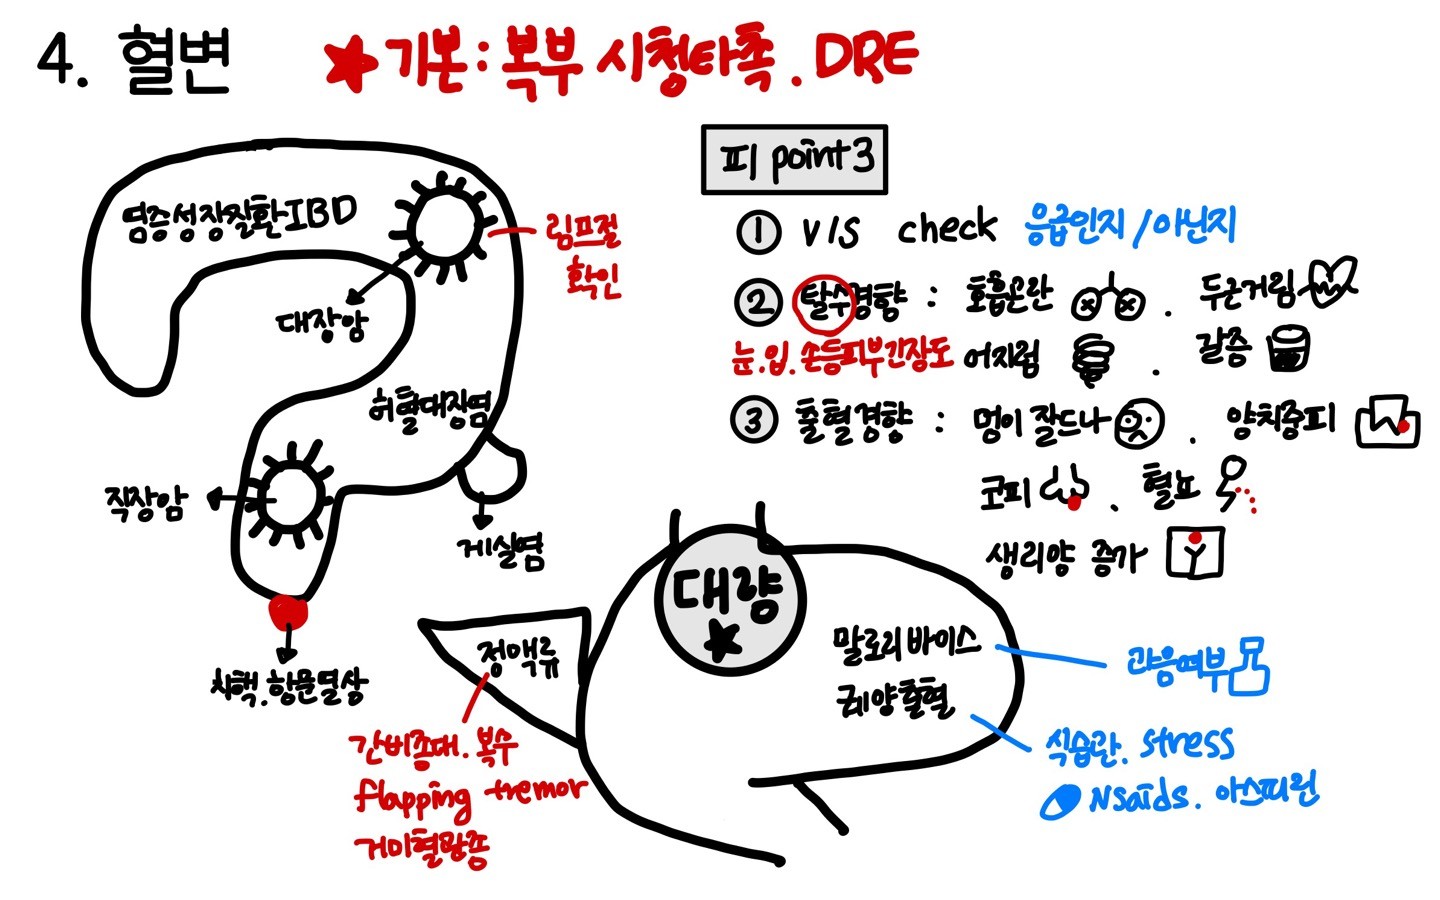 4. 혈변 ★기본: 복부 시청타촉. DRE
염증성장질환IBD
림프절
확인
대장암
허혈대장염
직장암
게실염
치핵.항문열상
피 point3
① V/S check 응급인지/아닌지
② 탈수경향 : 호흡곤란 . 두근거림
눈.입.손등피부긴장도 어지럼 . 갈증
③ 출혈경향 : 멍이 잘드나 . 양치중피
코피 . 혈뇨
생리양 증가
대량
★
정맥류
간비종대. 복수
flapping tremor
거미혈관종
말로리바이스
궤양출혈
과음여부
식습관. stress
Nsaids. 아스피린